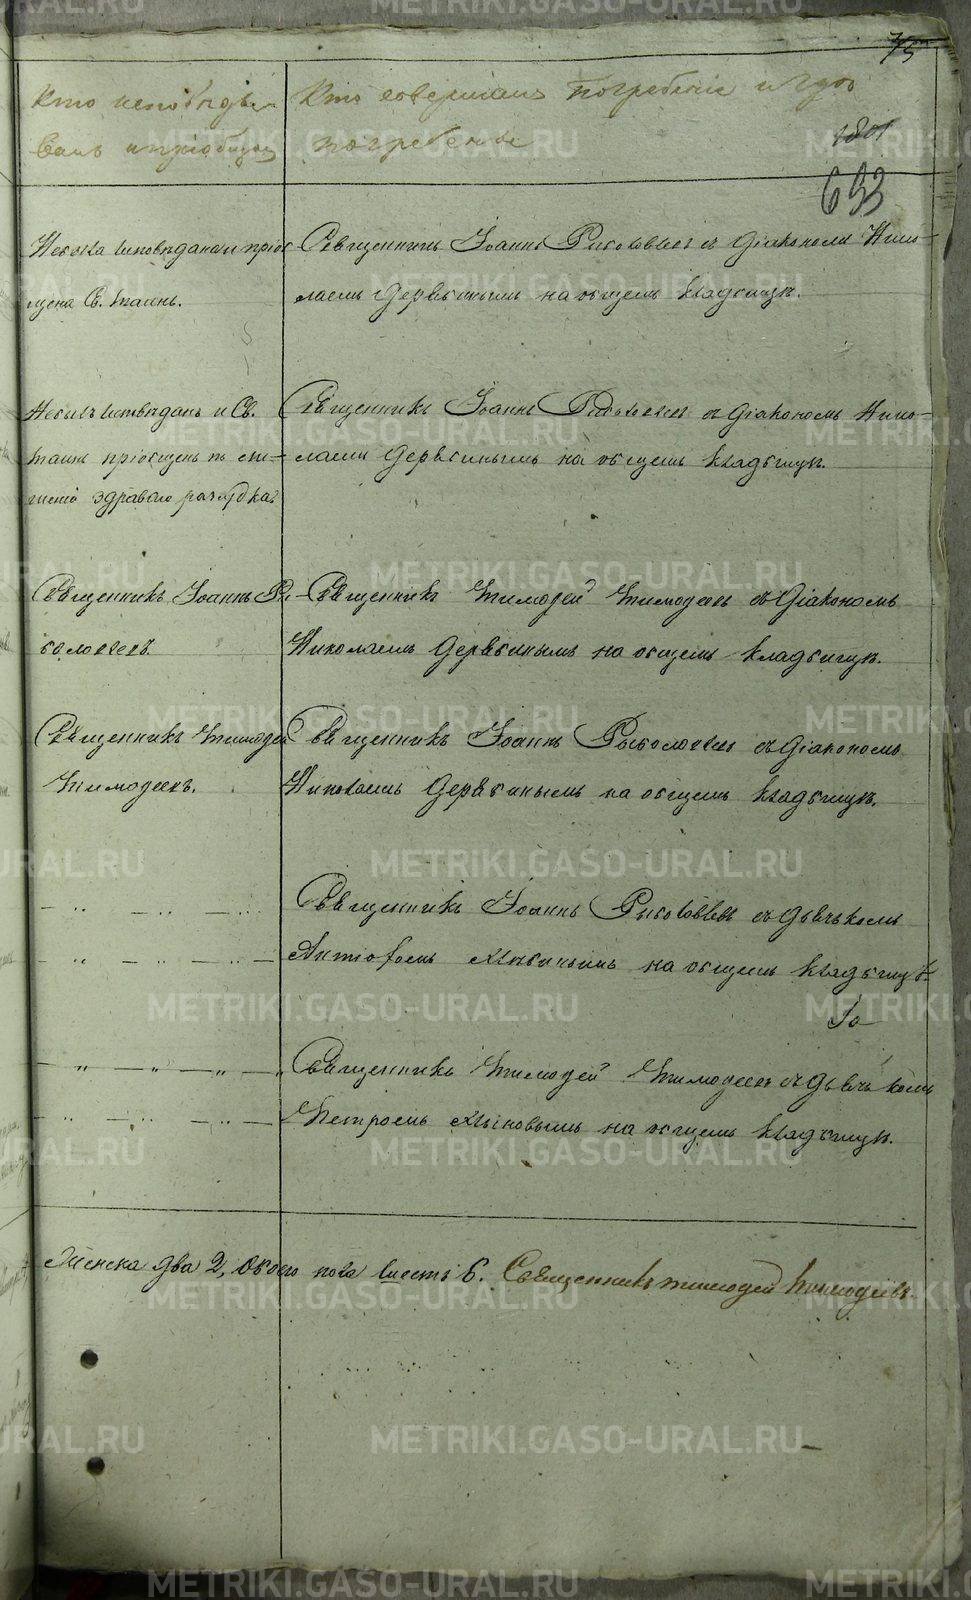 75
Кто исповѣды-
валъ и пріобщалъ
Кто совершалъ погребеніе и гдѣ
погребены
1801
633
Не была исповѣдана и пріоб-
щена Св. таинъ.
Священникъ Іоаннъ Рыболовлевъ съ діакономъ Нико-
лаемъ Дерябинымъ на общемъ кладбищѣ.
Не былъ исповѣданъ и Св.
таинъ пріобщенъ по
здраваго разсудка
Священникъ Іоаннъ Рыболовлевъ съ діакономъ Нико-
лаемъ Дерябинымъ на общемъ кладбищѣ.
Священникъ Іоаннъ Ры-
боловлевъ.
Священникъ Тимофей Тимофеевъ съ діакономъ
Николаемъ Дерябинымъ на общемъ кладбищѣ.
Священникъ Тимофей
Тимофеевъ.
Священникъ Іоаннъ Рыболовлевъ съ діакономъ
Николаемъ Дерябинымъ на общемъ кладбищѣ.
Священникъ Іоаннъ Рыболовлевъ съ дьячькомъ
на общемъ кладбищѣ.
Священникъ Тимофей Тимофеевъ съ дьячькомъ
Петромъ на общемъ кладбищѣ.
Женска два 2, обоего пола шесть 6. Священникъ Тимофей Тимофеевъ.
METRIKI.GASO-URAL.RU